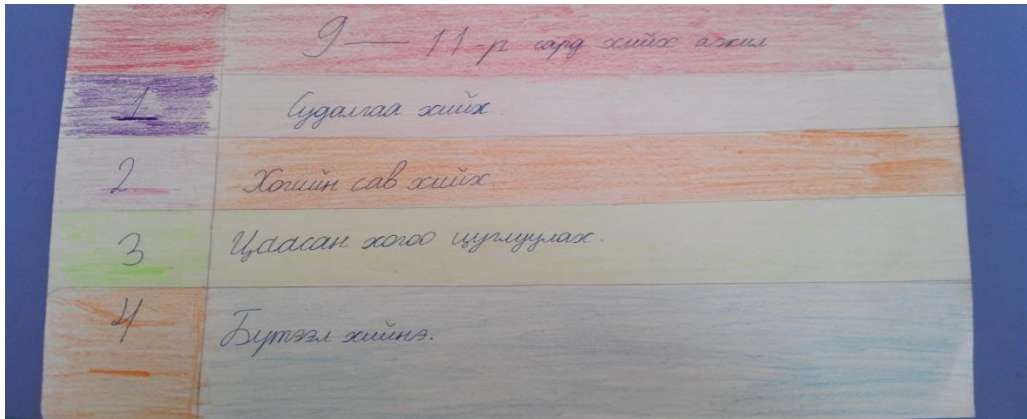 9 — 11-р сард хийх ажил
1. Судалгаа хийх
2. Хогийн сав хийх
3 Цаасан хогоо цуглуулах.
4 Бүтээл хийнэ.